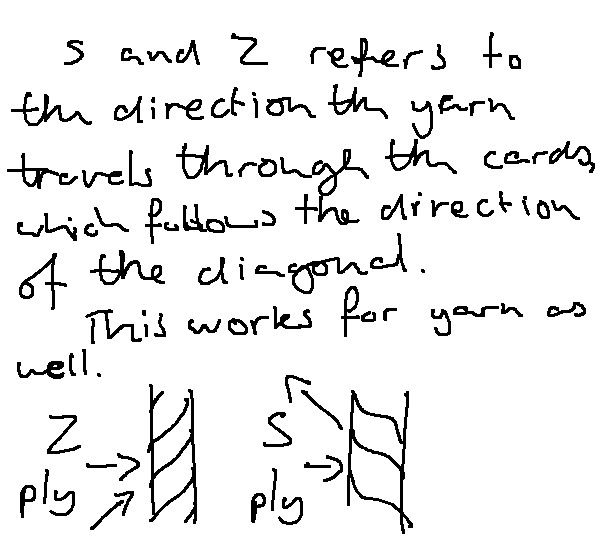 S and Z refers to
the direction the yarn
travels through the cards,
which follows the direction
of the diagonal.
This works for yarn as
well.
Z ply
S ply